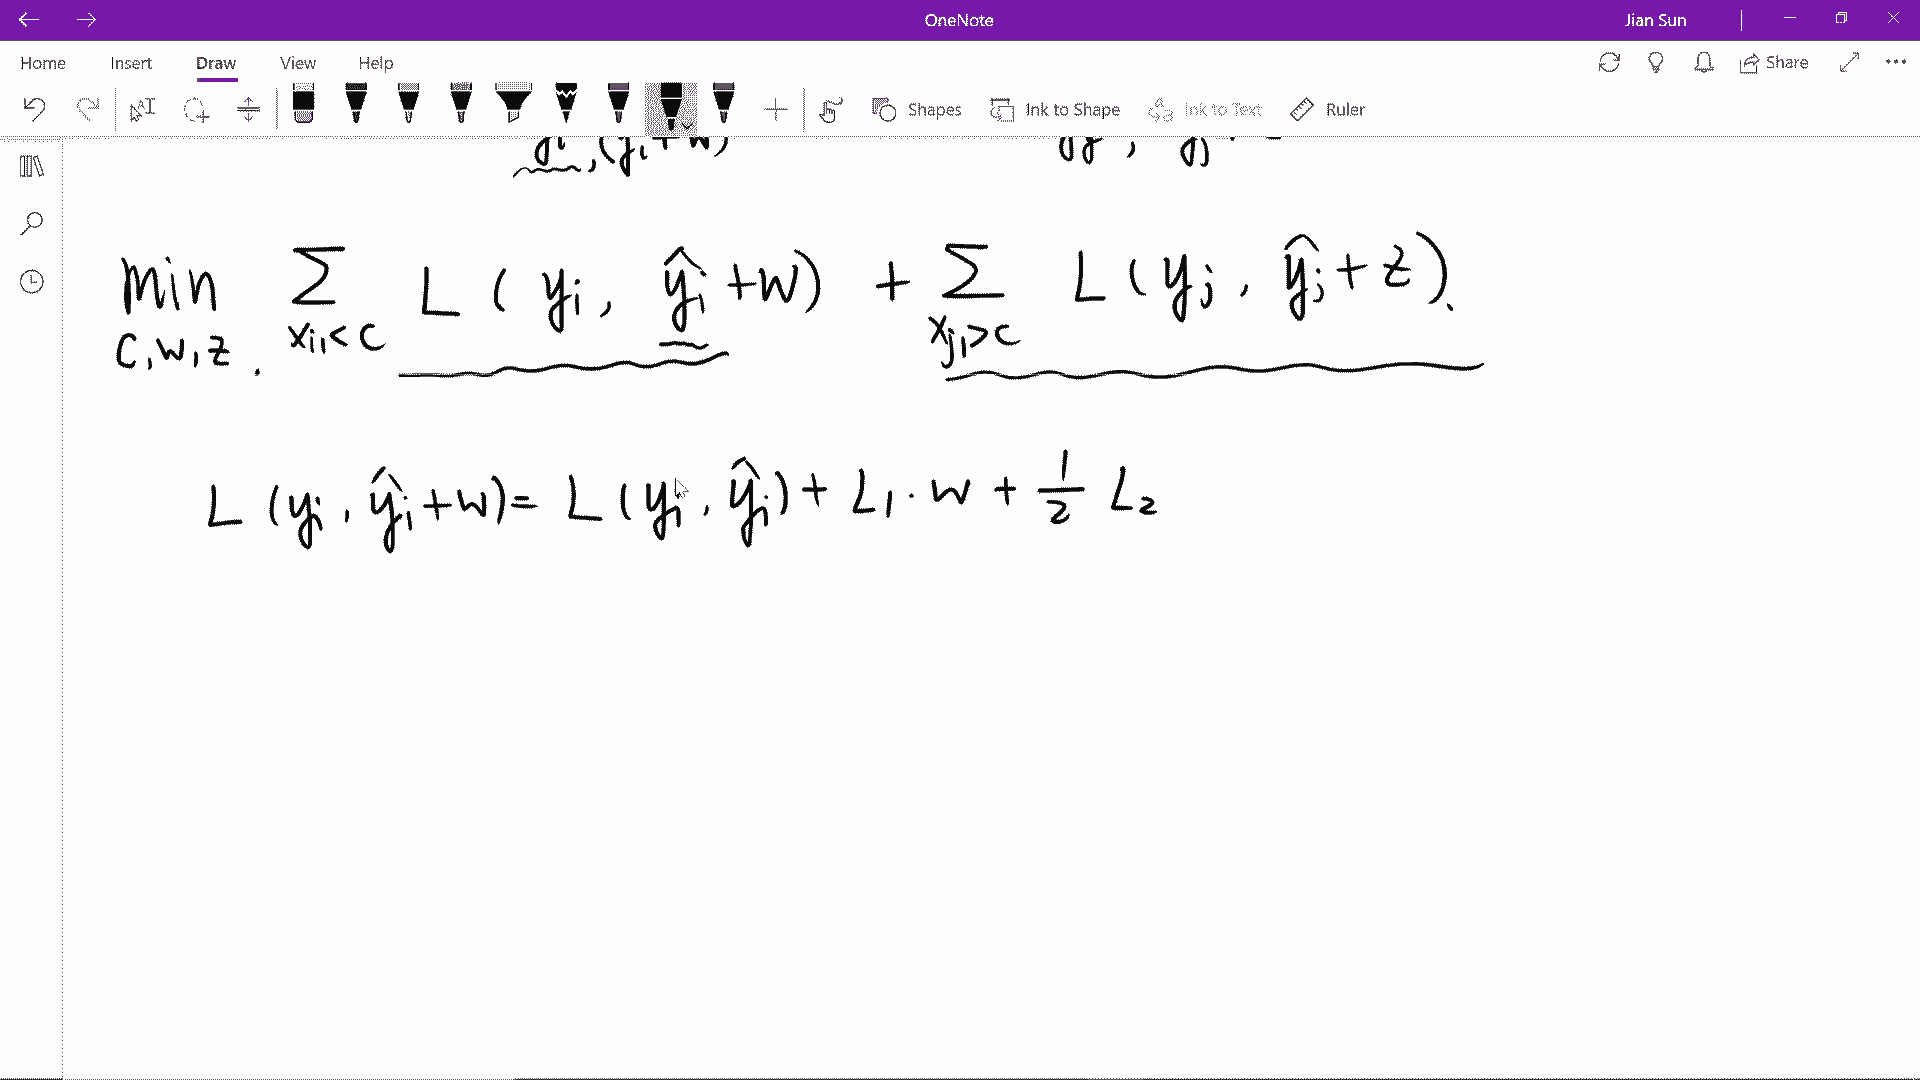 OneNote
Jian Sun
Home Insert Draw View Help
Share
Shapes Ink to Shape Ink to Text Ruler
, (yi+w)
min Σ L ( yi, ŷi +w) + Σ L ( yj , ŷj + z ).
c,w,z . xi1 < c xj1 > c
L (yi , ŷi +w) = L (yi , ŷi) + L1 · w + 1/2 L2